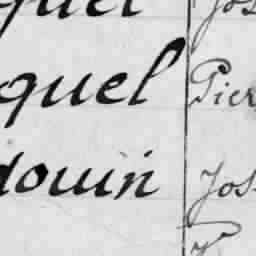 quel Jos
quel Pier
douin Jos